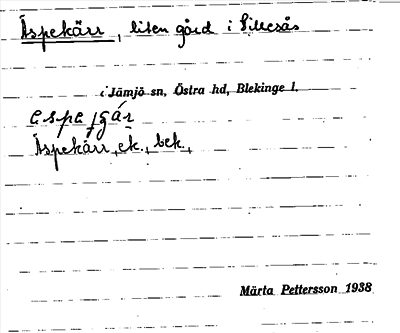 Äspekärr, liten gård i Lillesås
i Jämjö sn, Östra hd, Blekinge l.
Äspekärr, ek., bek.,
Märta Pettersson 1938